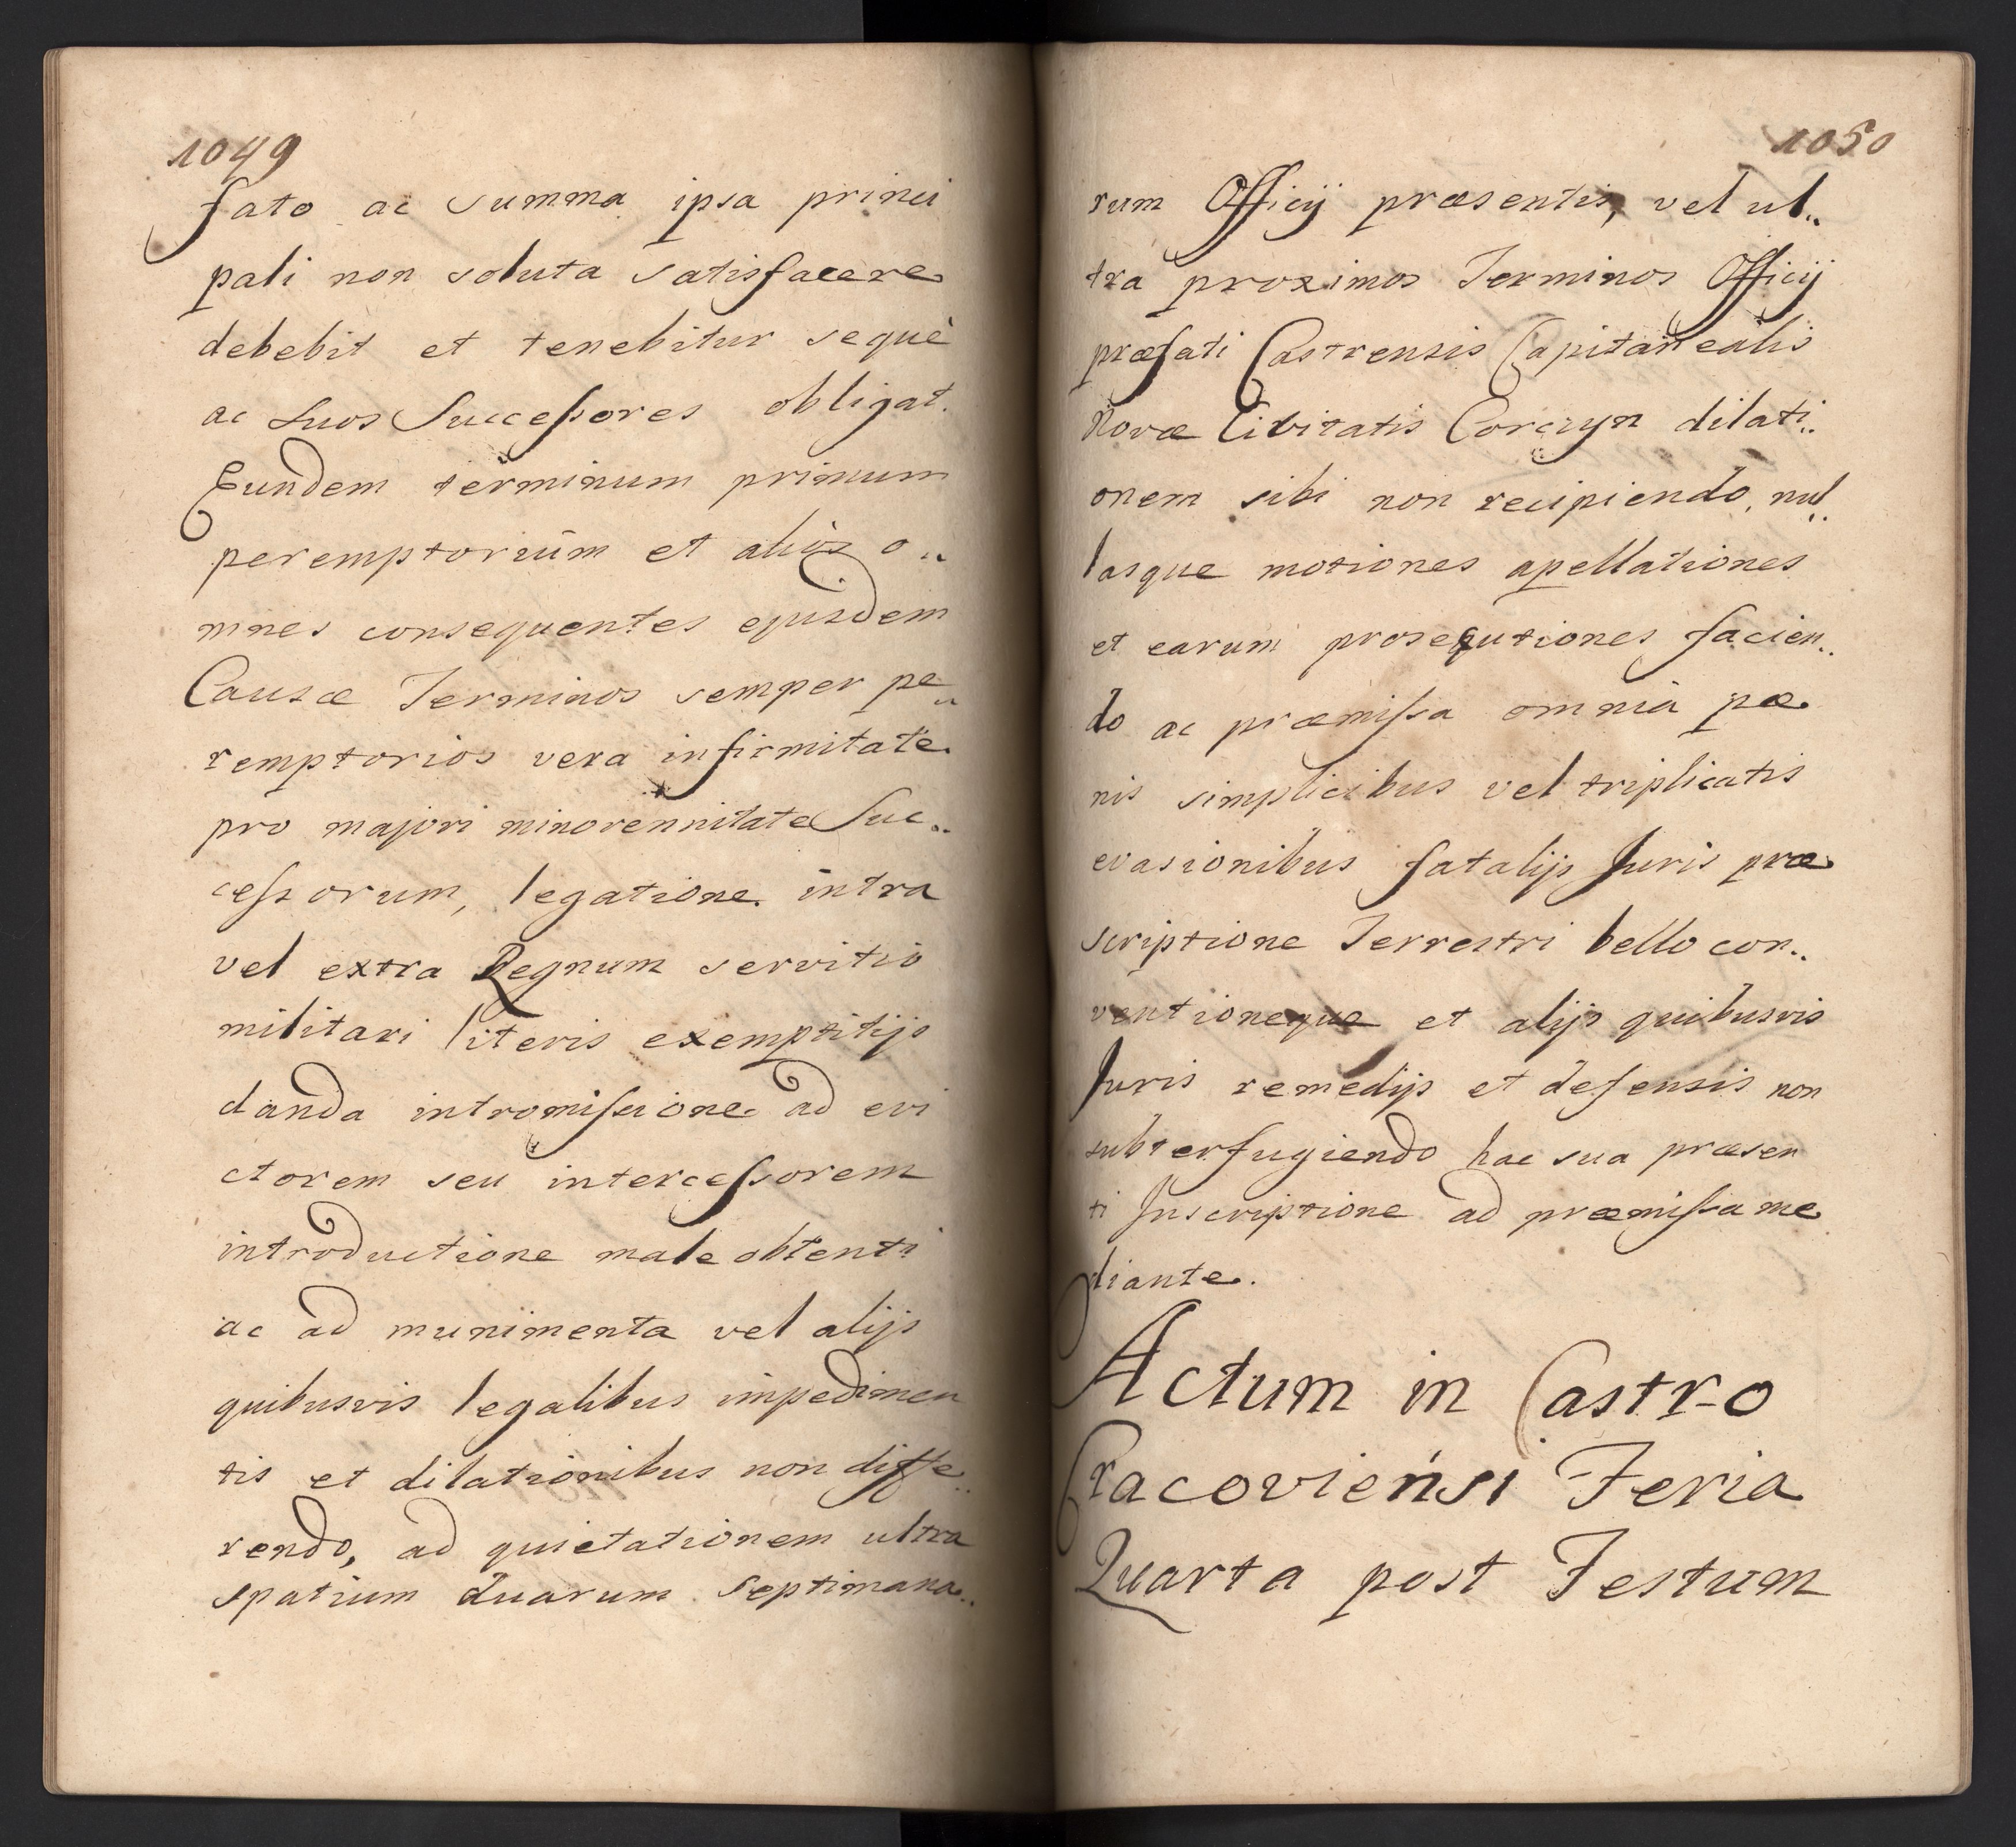 1049
fato ac summa ipsa princi
pali non soluta satisfacere
debebit et tenebitur sequè
ac suos Successores obligat.
Eundem terminum primum
peremptorium et alios o„
mnes consequentes ejusdem
Causæ Terminos semper pe„
remptorios vera infirmitate
pro majori minorennitate Suc„
cessorum, legatione intra
vel extra Regnum servitio
militari literis exemptitijs
danda intromissione ad evi
ctorem seu intercessorem
introductione male obtenti
ac ad munimenta vel alijs
quibusvis legalibus impedimen
tis et dilationibus non diffe„
rendo, ad quietationem ultra
spatium duarum septimana„
1050
rum Officij præsentis, vel ul„
tra proximos Terminos Officij
præfati Castrensis Capitanealis
Novæ Civitatis Corczyn dilati„
onem sibi non recipiendo, nul„
lasque motiones apellationes
et earum prosequtiones facien„
do ac præmissa omnia pæ
nis simplicibus vel triplicatis
evasionibus fatalijs Juris præ
scriptione Terrestri bello con„
ventioneque et alijs quibusvis
Juris remedijs et defensis non
subterfugiendo hac sua præsen
ti Inscriptione ad præmissa me
diante.
Actum in Castro
Cracoviensi Feria
Quarta post Festum